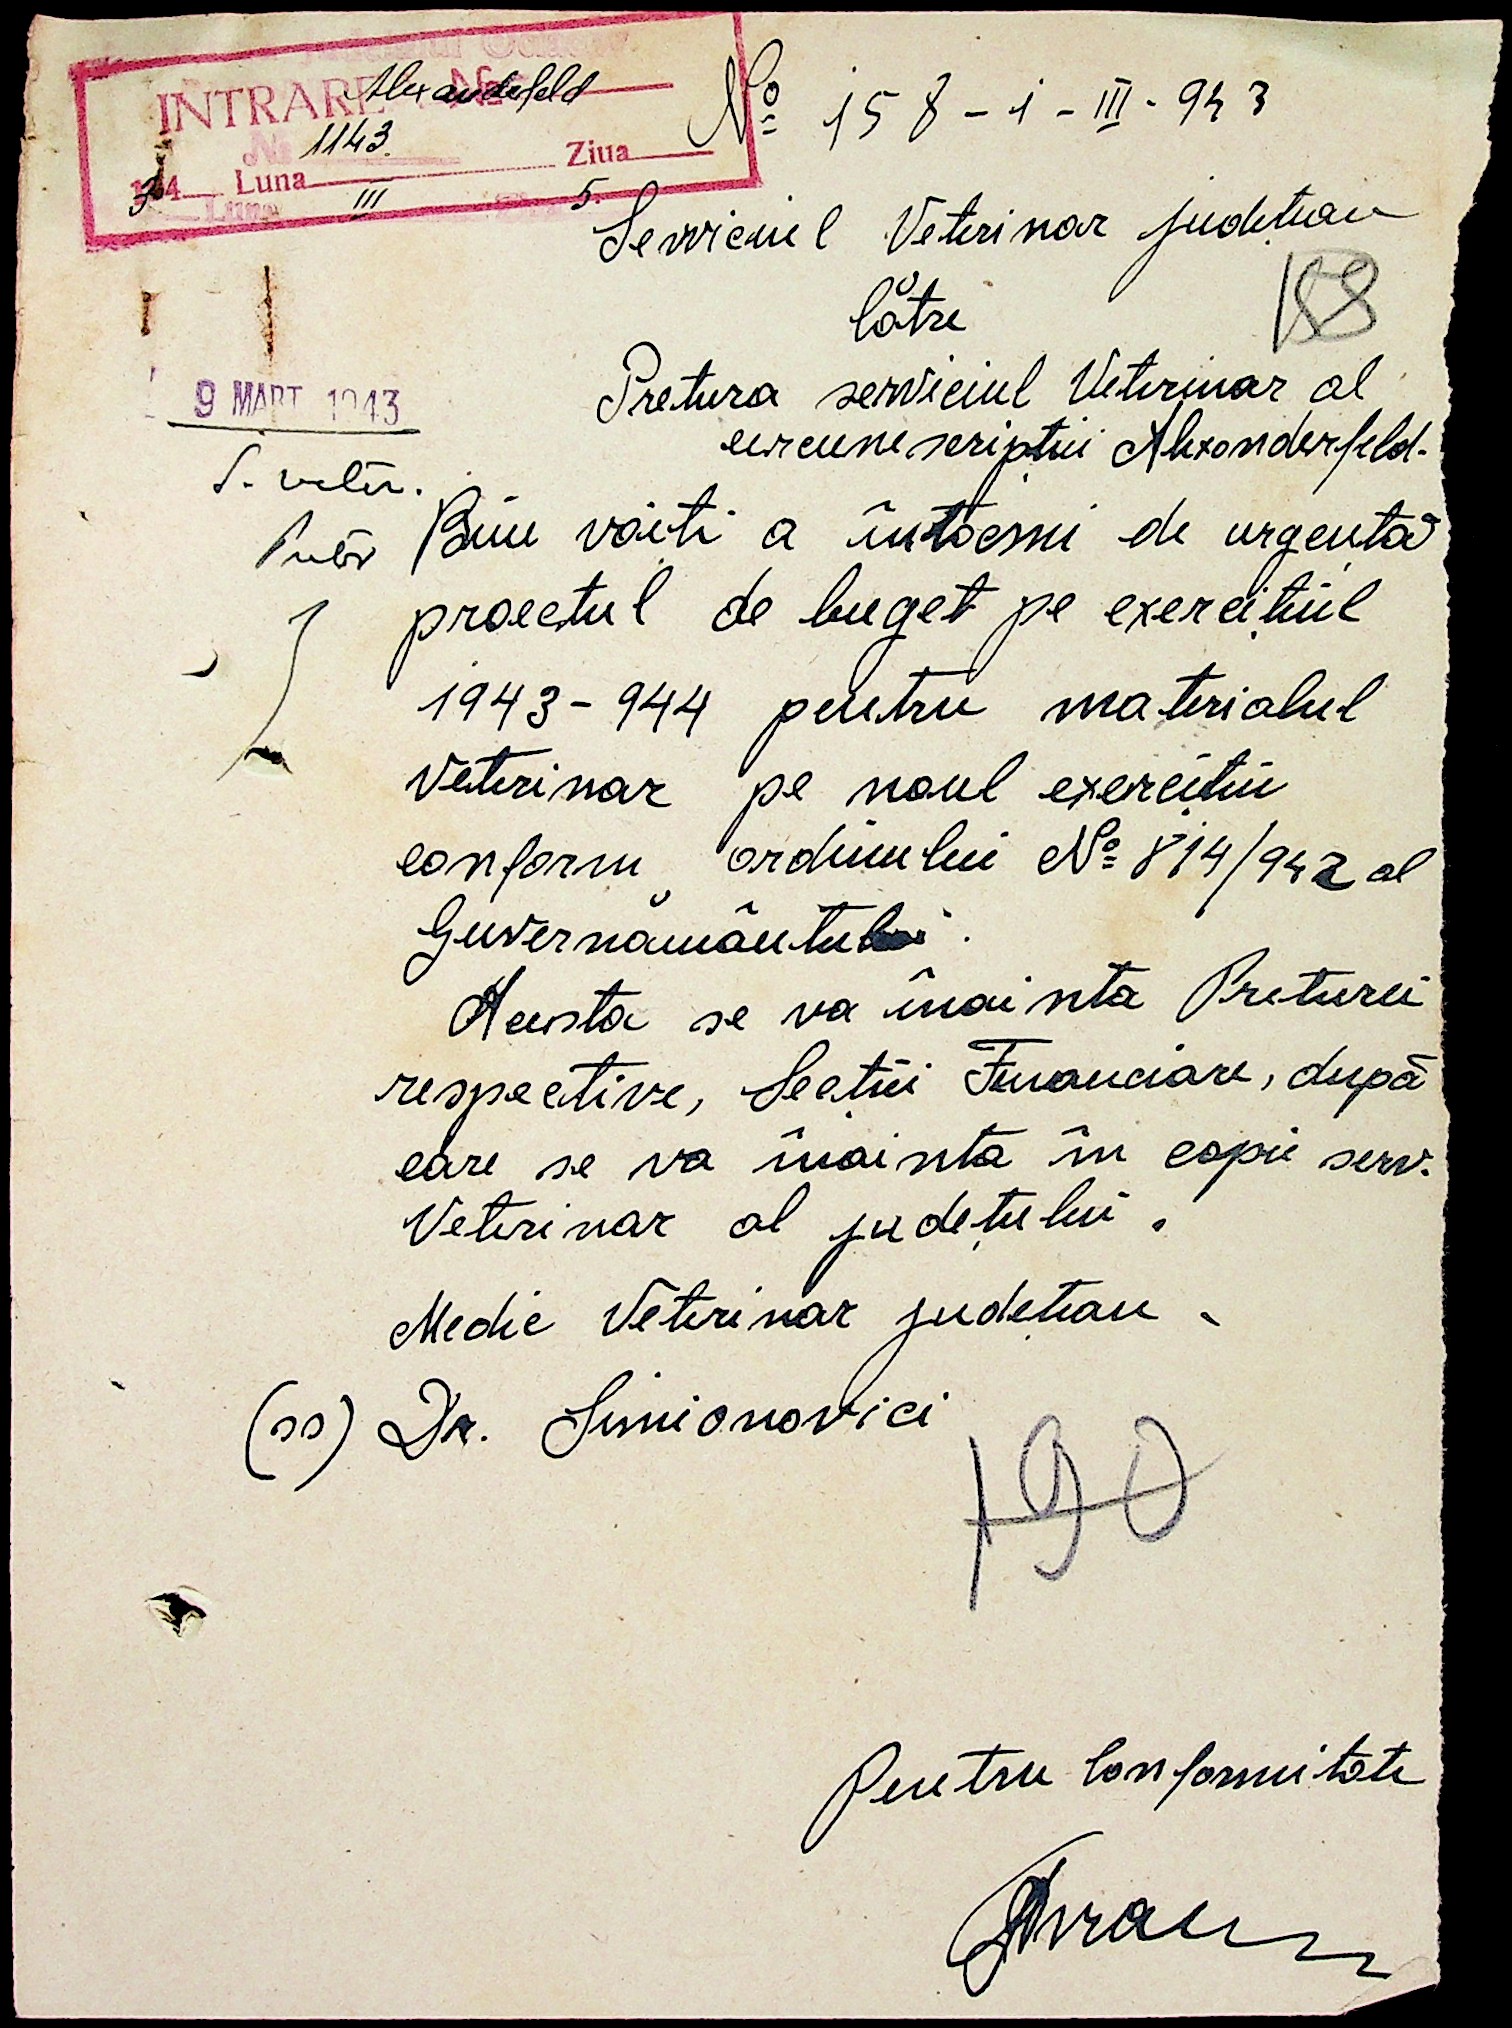 INTRARE Alexanderfeld
№ 1143
194 Luna III Ziua 5.
№ 158-1-III-943
Serviciul Veterinar județean
Către
188
Pretura serviciul Veterinar al
circumscripției Alexanderfeld.
9 MART 1943
S. veter.
Bine voiți a întocmi de urgență
proectul de buget pe exercițiul
1943-944 pentru materialul
Veterinar pe noul exercițiu
conform ordinului № 814/942 al
Guvernământului.
Acesta se va înainta Preturei
respective, Secției Financiare, după
care se va înainta în copie serv.
Veterinar al județului.
Medic Veterinar județean
(ss) Dr. Simionovici
190
Pentru Conformitate